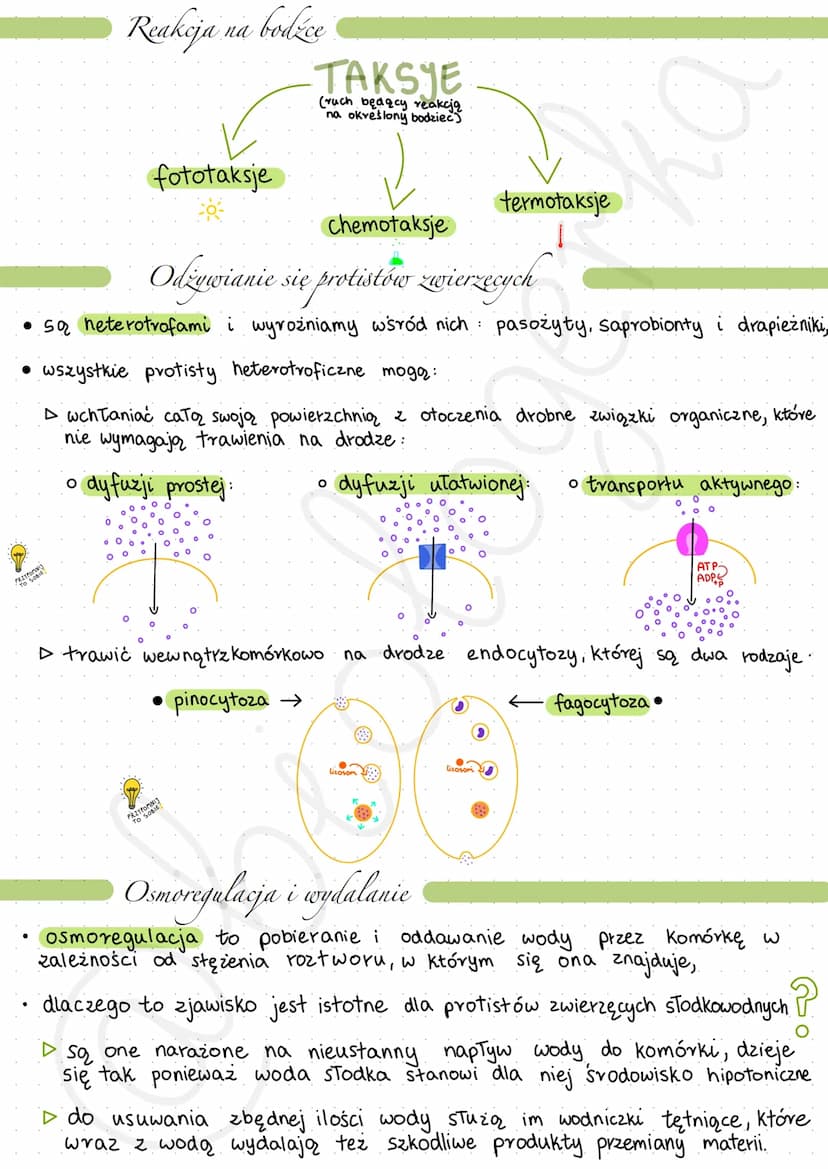 Reakcja na bodźce
TAKSJE
(ruch będący reakcją
na określony bodziec)
fototaksje
chemotaksje
termotaksje
Odżywianie się protistów zwierzęcych
• są heterotrofami i wyrożniamy wśród nich : pasożyty, saprobionty i drapieżniki,
• wszystkie protisty heterotroficzne mogą:
▷ wchłaniać całą swoją powierzchnią z otoczenia drobne związki organiczne, które
nie wymagają trawienia na drodze :
○ dyfuzji prostej:
○ dyfuzji ułatwionej:
○ transportu aktywnego:
PRZYPOMNIJ
TO SOBIE!
ATP
ADP+P
▷ trawić wewnątrzkomórkowo na drodze endocytozy, której są dwa rodzaje.
• pinocytoza →
← fagocytoza •
lizosom
lizosom
PRZYPOMNIJ
TO SOBIE!
Osmoregulacja i wydalanie
• osmoregulacja to pobieranie i oddawanie wody przez komórkę w
zależności od stężenia roztworu, w którym się ona znajduje,
• dlaczego to zjawisko jest istotne dla protistów zwierzęcych słodkowodnych ?
▷ są one narażone na nieustanny napływ wody do komórki, dzieje
się tak ponieważ woda słodka stanowi dla niej środowisko hipotoniczne
▷ do usuwania zbędnej ilości wody służą im wodniczki tętniące, które
wraz z wodą wydalają też szkodliwe produkty przemiany materii.